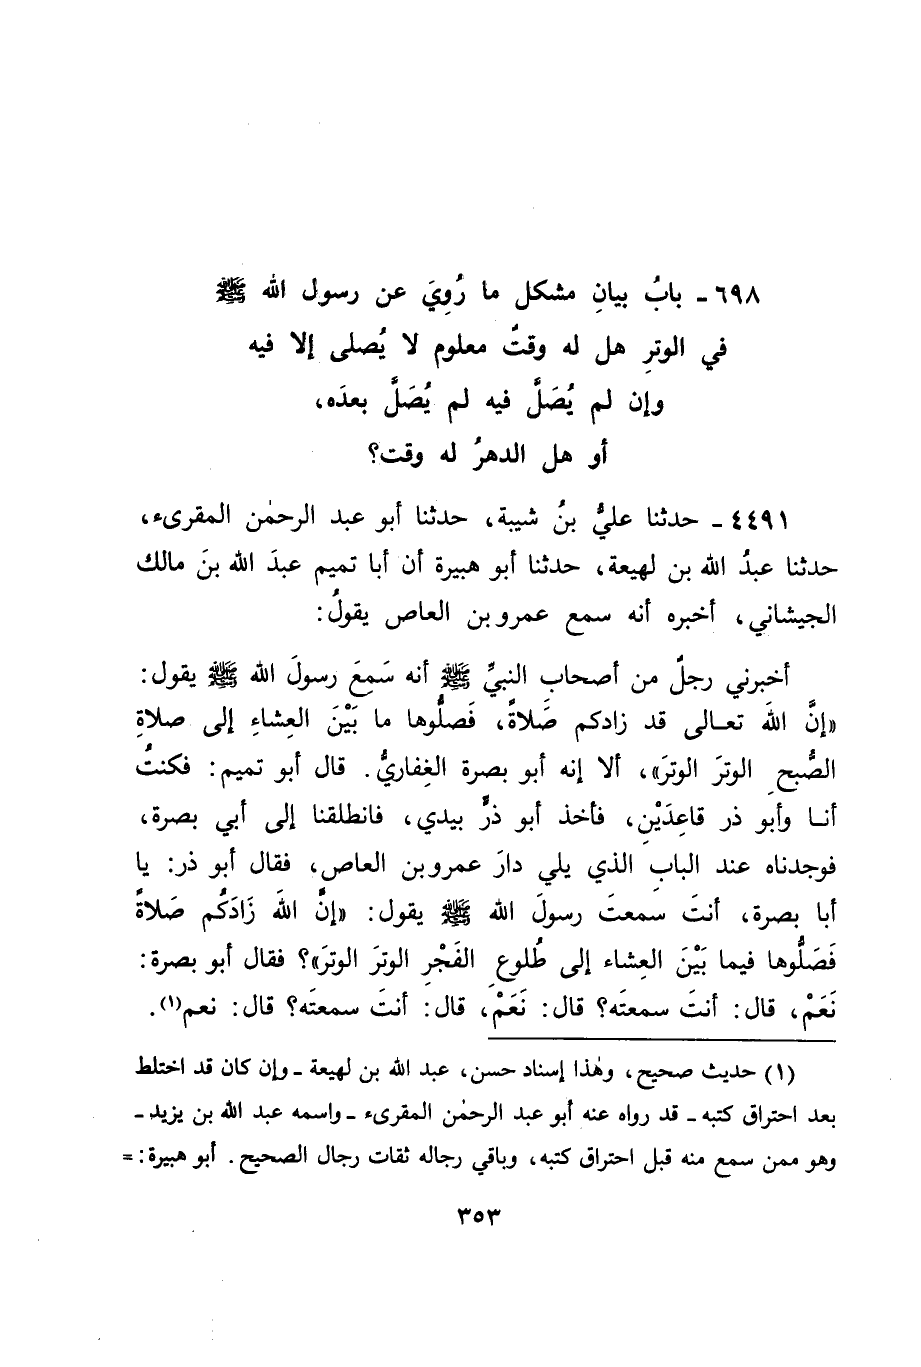 ٦٩٨ - بابُ بيانِ مشكل ما رُوِيَ عن رسول الله ﷺ
في الوترِ هل له وقتٌ معلوم لا يُصلى إلا فيه
وإن لم يُصَلَّ فيه لم يُصَلَّ بعدَه،
أو هل الدهرُ له وقت؟
٤٤٩١ - حدثنا عليُّ بنُ شيبة، حدثنا أبو عبد الرحمٰن المقرىء،
حدثنا عبدُ الله بن لهيعة، حدثنا أبو هبيرة أن أبا تميم عبدَ الله بنَ مالك
الجيشاني، أخبره أنه سمع عمرو بن العاص يقولُ:
أخبرني رجلٌ من أصحاب النبيِّ ﷺ أنه سَمِعَ رسولَ الله ﷺ يقول:
«إنَّ اللهَ تعالى قد زادكم صَلاةً، فَصلُّوها ما بَيْنَ العِشاءِ إلى صلاةِ
الصُّبحِ الوترَ الوترَ»، ألا إنه أبو بصرة الغِفاريُّ. قال أبو تميم: فكنتُ
أنا وأبو ذر قاعِدَيْنِ، فأخذ أبو ذرٍّ بيدي، فانطلقنا إلى أبي بصرة،
فوجدناه عند البابِ الذي يلي دارَ عمرو بن العاص، فقال أبو ذر: يا
أبا بصرة، أنتَ سمعتَ رسولَ الله ﷺ يقول: «إنَّ اللهَ زَادَكُم صَلاةً
فَصَلُّوها فيما بَيْنَ العِشاء إلى طُلوعِ الفَجْرِ الوترَ الوترَ»؟ فقال أبو بصرة:
نَعَمْ، قال: أنتَ سمعتَه؟ قال: نَعَمْ، قال: أنتَ سمعتَه؟ قال: نعم(١).
(١) حديث صحيح، وهٰذا إسناد حسن، عبد الله بن لهيعة - وإن كان قد اختلط
بعد احتراق كتبه - قد رواه عنه أبو عبد الرحمٰن المقرىء - واسمه عبد الله بن يزيد -
وهو ممن سمع منه قبل احتراق كتبه، وباقي رجاله ثقات رجال الصحيح. أبو هبيرة: =
٣٥٣